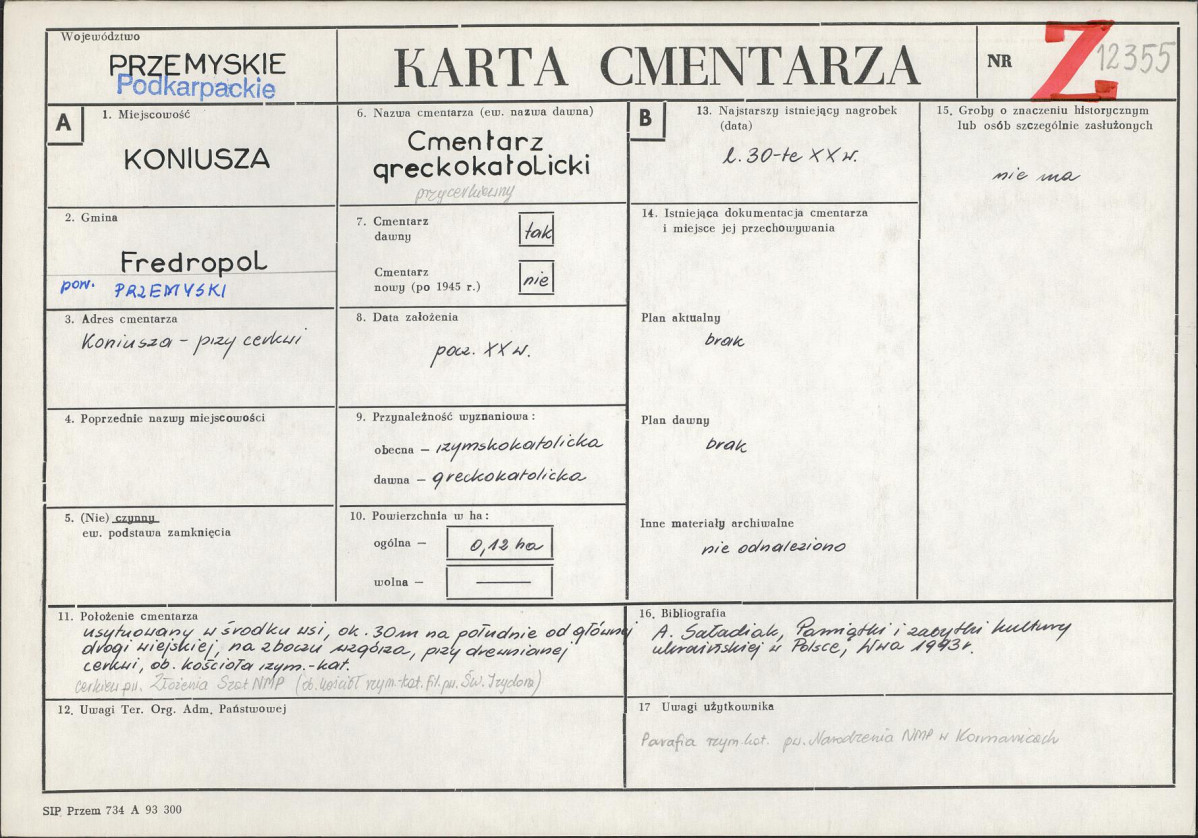 Województwo
PRZEMYSKIE
Podkarpackie
KARTA CMENTARZA
NR
Z
12355
A
1. Miejscowość
KONIUSZA
2. Gmina
Fredropol
pow. PRZEMYSKI
3. Adres cmentarza
Koniusza – przy cerkwi
4. Poprzednie nazwy miejscowości
5. (Nie) czynny
ew. podstawa zamknięcia
6. Nazwa cmentarza (ew. nazwa dawna)
Cmentarz
greckokatolicki
przycerkiewny
7. Cmentarz
dawny
tak
Cmentarz
nowy (po 1945 r.)
nie
8. Data założenia
pocz. XX w.
9. Przynależność wyznaniowa:
obecna – rzymskokatolicka
dawna – greckokatolicka
10. Powierzchnia w ha:
ogólna – 0,12 ha
wolna – —
B
13. Najstarszy istniejący nagrobek
(data)
l. 30-te XX w.
14. Istniejąca dokumentacja cmentarza
i miejsce jej przechowywania
Plan aktualny
brak
Plan dawny
brak
Inne materiały archiwalne
nie odnaleziono
15. Groby o znaczeniu historycznym
lub osób szczególnie zasłużonych
nie ma
11. Położenie cmentarza
usytuowany w środku wsi, ok. 30 m na południe od głównej
drogi wiejskiej, na zboczu wzgórza, przy drewnianej
cerkwi, ob. kościoła rzym.-kat.
cerkiew pw. Złożenia Szat NMP (ob. kościół rzym.-kat. fil. pw. Św. Izydora)
12. Uwagi Ter. Org. Adm. Państwowej
16. Bibliografia
A. Saładiak, Pamiątki i zabytki kultury
ukraińskiej w Polsce, Wwa 1993r.
17 Uwagi użytkownika
Parafia rzym.kat. pw. Narodzenia NMP w Kormanicach
SIP Przem 734 A 93 300